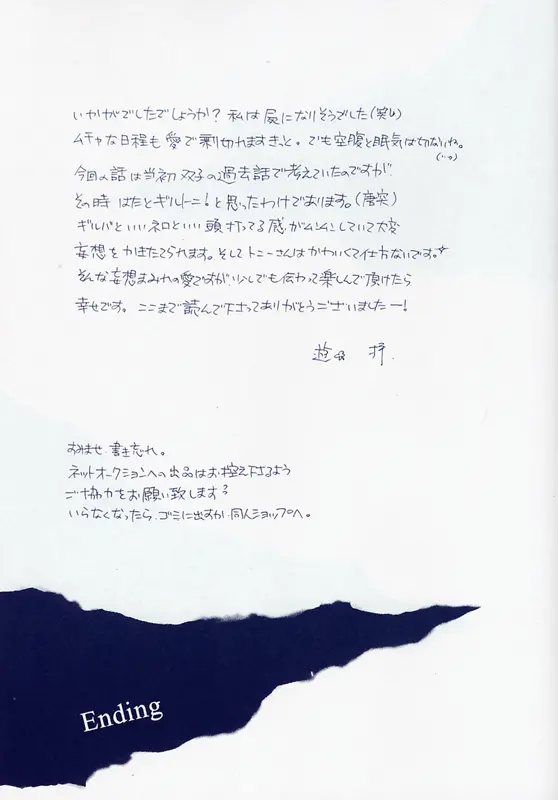 いかがでしたでしょうか? 私は屍になりそうでした(笑)
ムチャな日程も愛で乗り切れますきっと。でも空腹と眠気は切ないね。
今回の話は当初 双子の過去話で考えていたのですが
その時 はたとギルトニ!と思ったわけであります。(唐突)
ギルバといいネロといい 頭打ってる感がムンムンしていて大変
妄想をかきたてられます。そしてトニーさんはかわいくて仕方ないです。
そんな妄想まみれの愛ですが、少しでも伝わって楽しんで頂けたら
幸せです。ここまで読んで下さってありがとうございましたー!
すみませ、書き忘れ。
ネットオークションへの出品はお控え下さるよう
ご協力をお願い致します
いらなくなったら、ゴミに出すか、同人ショップへ。
Ending